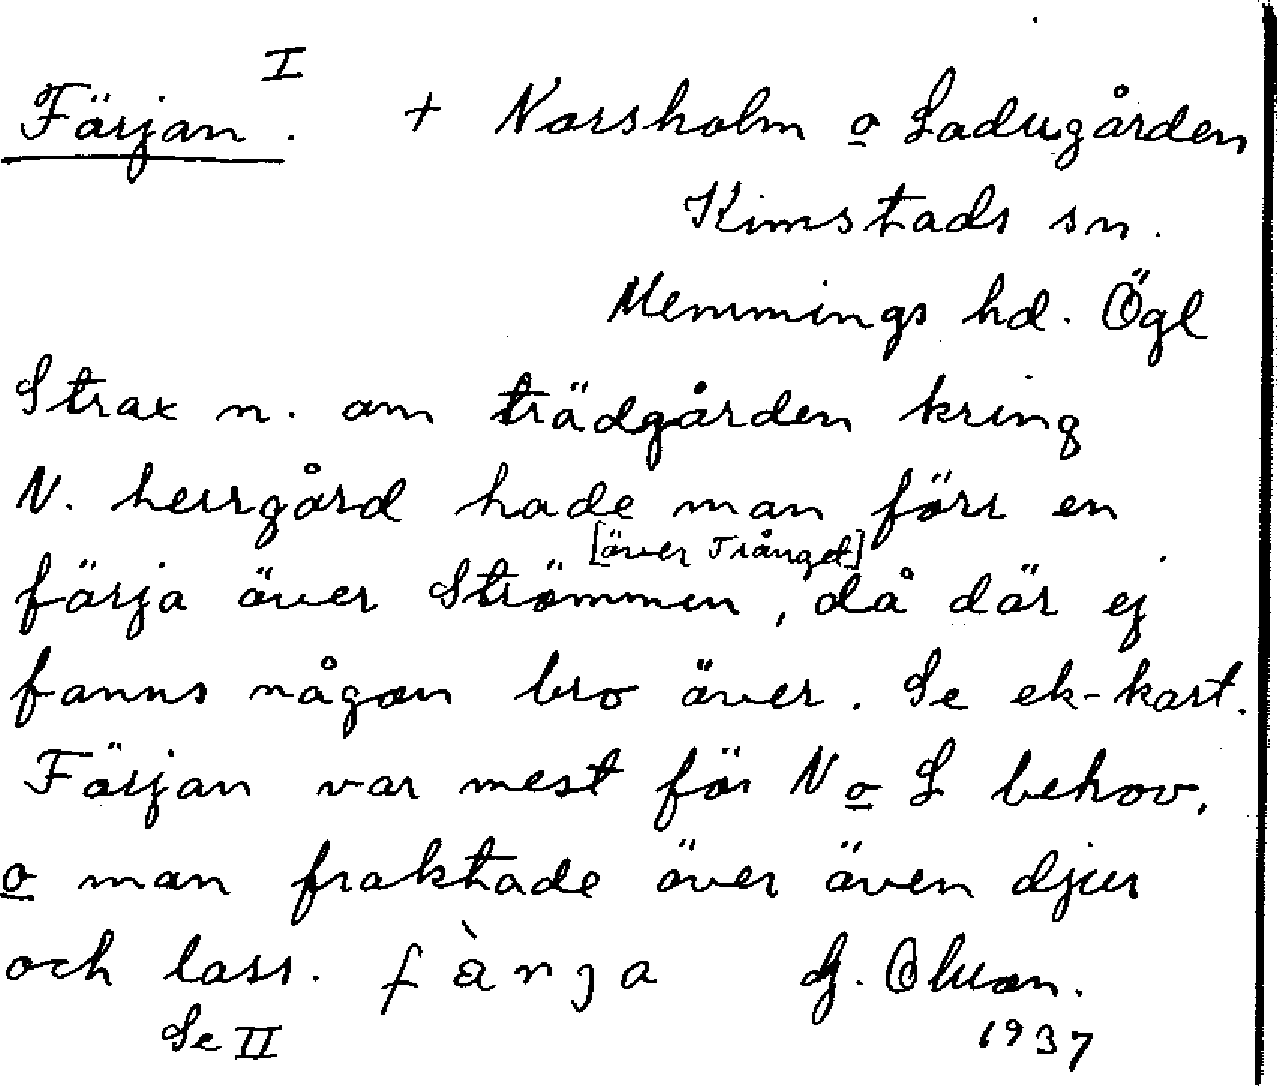 I
Färjan. + Norsholm o Ladugården
Kimstads sn.
Memmings hd. Ögl
Strax n. om trädgården kring
N. herrgård hade man förr en
[över Trånget]
färja över Strömmen, då där ej
fanns någon bro över. Se ek-kart.
Färjan var mest för N o L behov,
o man fraktade över även djur
och lass. fàrja G. Olson.
Se II 1937